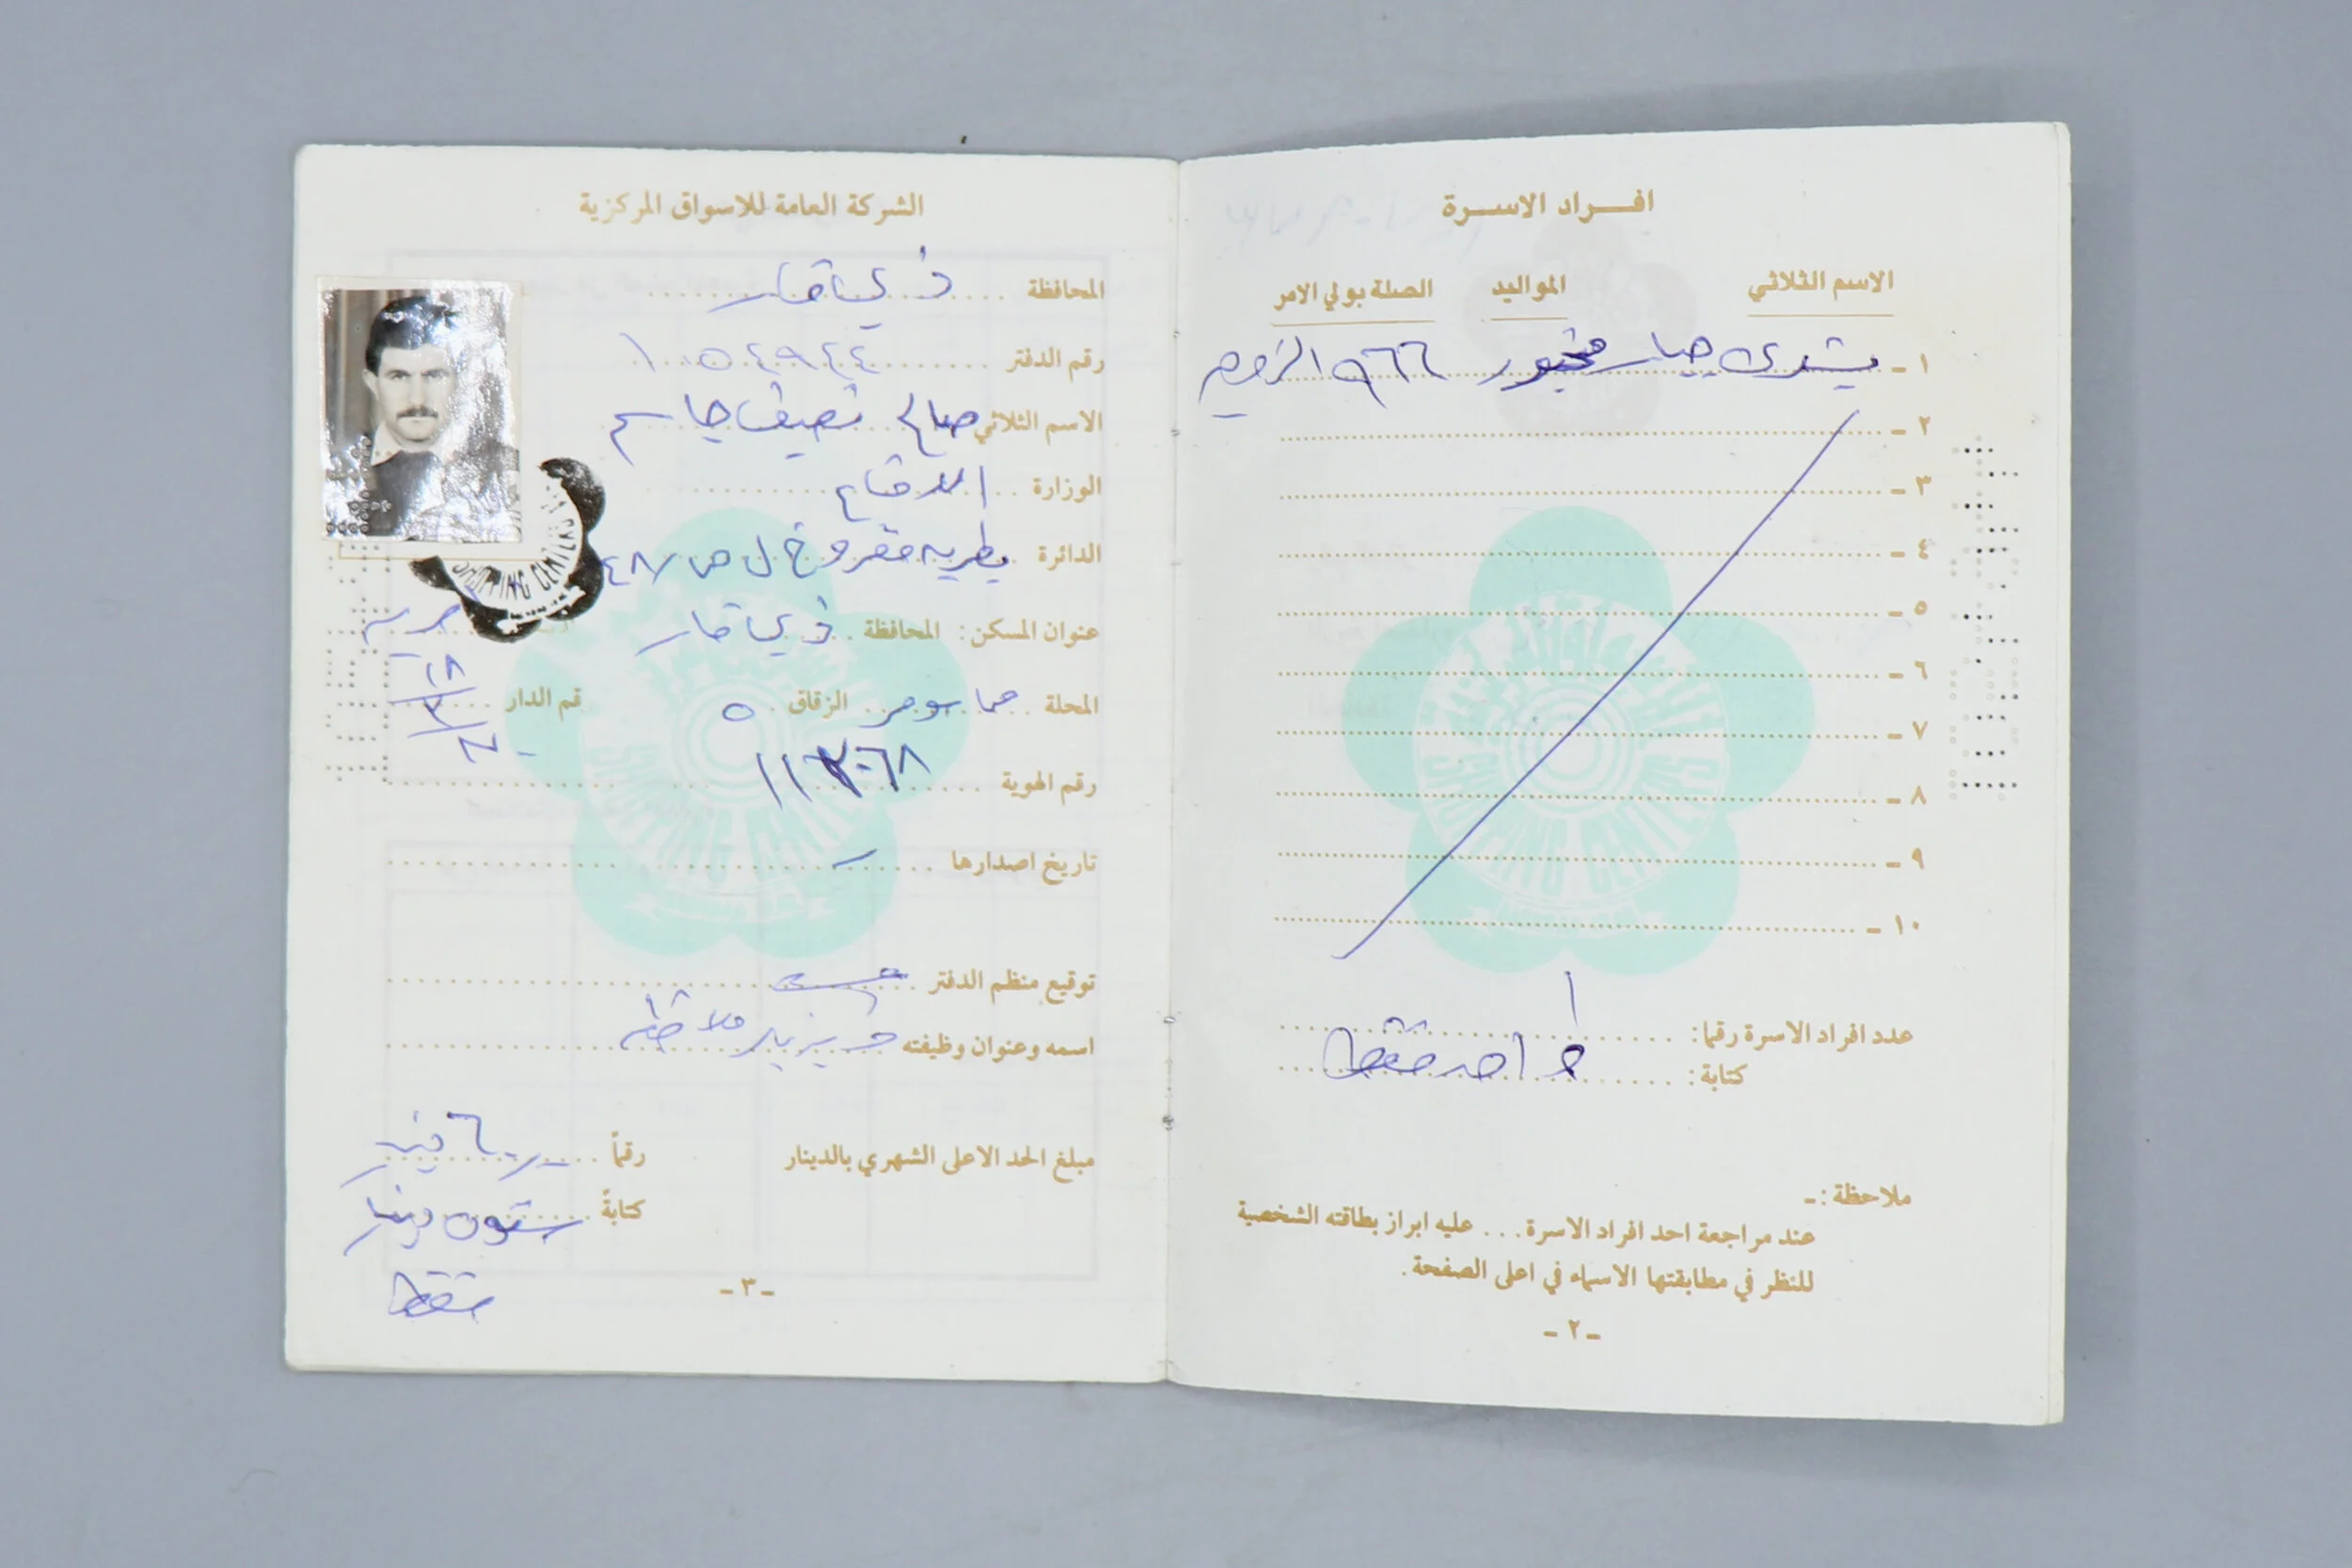 افراد الاسرة
الاسم الثلاثي المواليد الصلة بولي الامر
١ - بشرى جبار ٩٦٦
٢ -
٣ -
٤ -
٥ -
٦ -
٧ -
٨ -
٩ -
١٠ -
عدد افراد الاسرة رقما: ١
كتابة: واحد فقط
ملاحظة :-
عند مراجعة احد افراد الاسرة ... عليه ابراز بطاقته الشخصية
للنظر في مطابقتها الاسماء في اعلى الصفحة.
- ٢ -
الشركة العامة للاسواق المركزية
المحافظة ذي قار
رقم الدفتر ١٠٥٤٩٤٤
الاسم الثلاثي صالح نصيف جاسم
الوزارة الدفاع
الدائرة بطرية مقر و خ ل ص / ٤٨
SHOPPING CENTERS
عنوان المسكن: المحافظة ذي قار
المحلة سومر الزقاق ٥ قم الدار
رقم الهوية
تاريخ اصدارها
توقيع منظم الدفتر
اسمه وعنوان وظيفته
مبلغ الحد الاعلى الشهري بالدينار رقماً ٦٠ دينار
كتابةً ستون دينار
فقط
- ٣ -